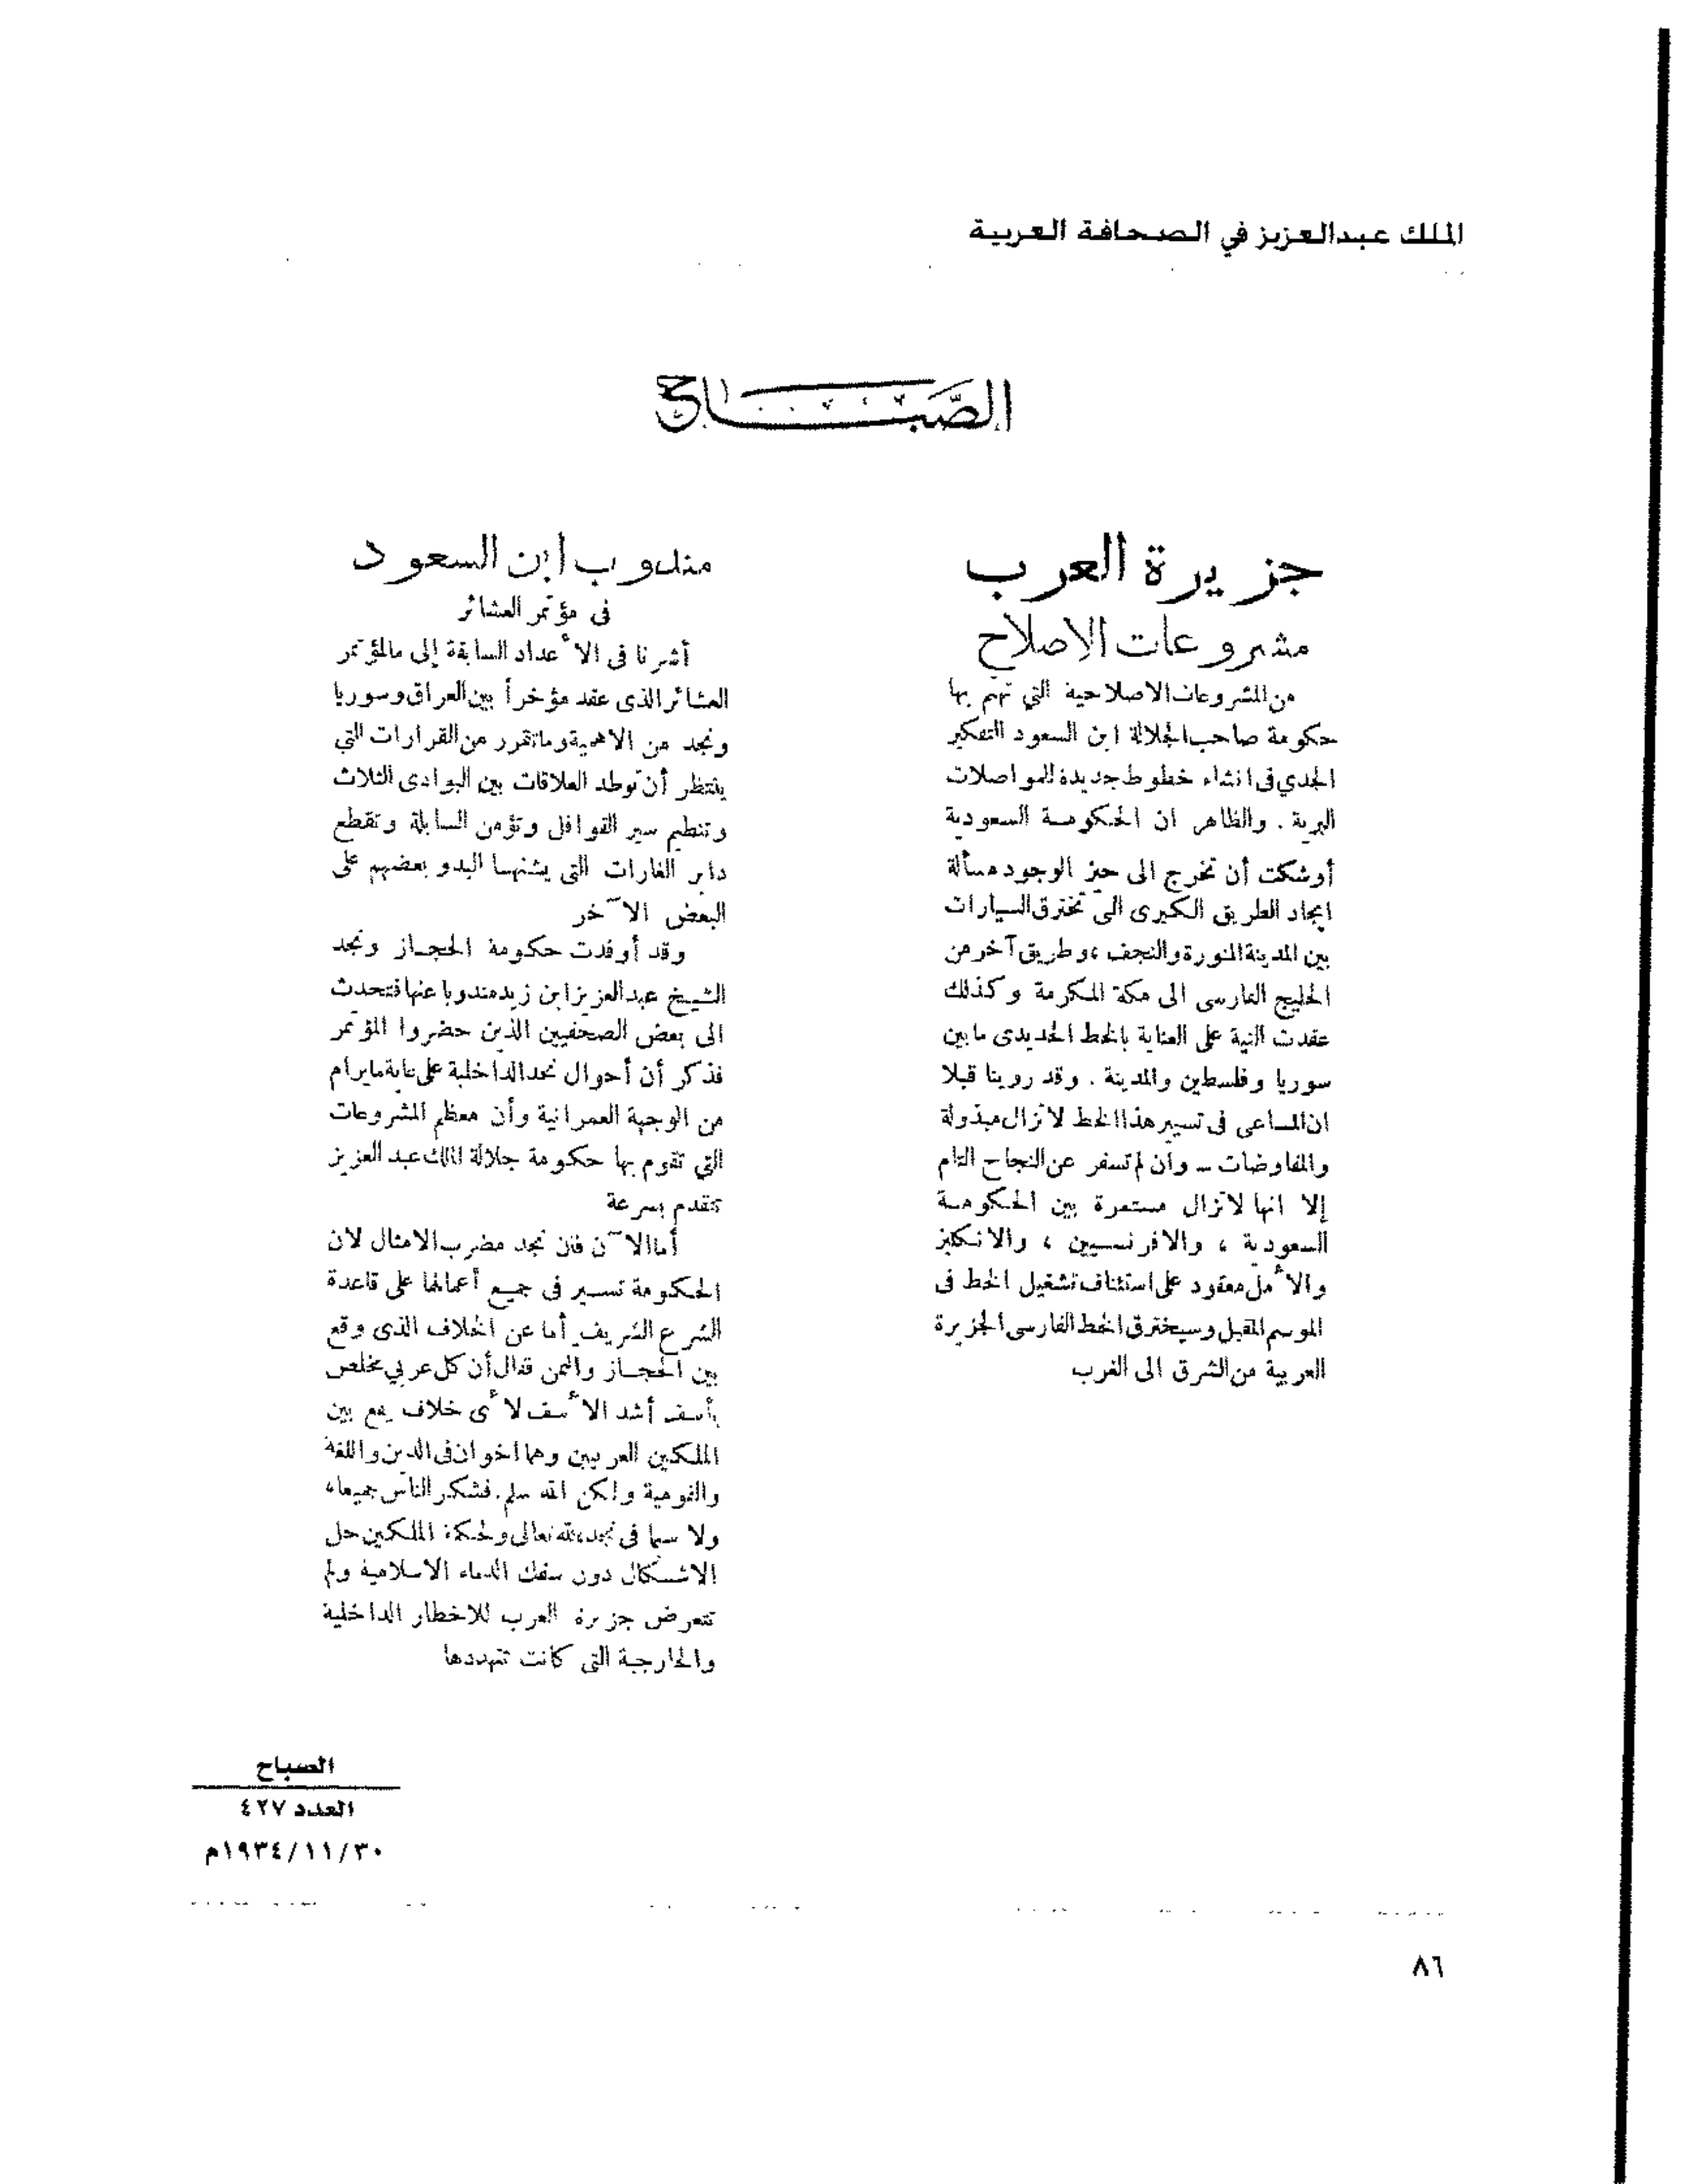 الملك عبدالعزيز في الصحافة العربية
الصَّبَاح
جزيرة العرب
مشروعات الإصلاح
من المشروعات الاصلاحية التي تهم بها
حكومة صاحب الجلالة ابن السعود التفكير
الجدي فى انشاء خطوط جديدة للمواصلات
البرية . والظاهر ان الحكومة السعودية
أوشكت أن تخرج الى حيز الوجود مسألة
ايجاد الطريق الكبرى التى تخترق السيارات
بين المدينة المنورة والنجف ، وطريق آخر من
الخليج الفارسى الى مكة المكرمة وكذلك
عقدت النية على العناية بالخط الحديدى مابين
سوريا وفلسطين والمدينة . وقد روينا قبلا
ان المساعى فى تسيير هذا الخط لا تزال مبذولة
والمفاوضات – وان لم تسفر عن النجاح التام
إلا انها لاتزال مستمرة بين الحكومة
السعودية ، والافرنسيين ، والانكليز
والأمل معقود على استئناف تشغيل الخط فى
الموسم المقبل وسيخترق الخط الفارسى الجزيرة
العربية من الشرق الى الغرب
مندوب ابن السعود
فى مؤتمر العشائر
أشرنا فى الأعداد السابقة إلى مالمؤتمر
العشائر الذى عقد مؤخراً بين العراق وسوريا
ونجد من الاهمية وماتقرر من القرارات التي
ينتظر أن توطد العلاقات بين البوادى الثلاث
وتنظيم سير القوافل وتؤمن السابلة وتقطع
دابر الغارات التى يشنها البدو بعضهم على
البعض الآخر
وقد أوفدت حكومة الحجاز ونجد
الشيخ عبد العزيز ابن زيد مندوبا عنها فتحدث
الى بعض الصحفيين الذين حضروا المؤتمر
فذكر أن أحوال نجد الداخلية على غاية مايرام
من الوجهة العمرانية وأن معظم المشروعات
التي تقوم بها حكومة جلالة الملك عبد العزيز
تتقدم بسرعة
أما الآن فان نجد مضرب الامثال لان
الحكومة تسير فى جميع أعمالها على قاعدة
الشرع الشريف. أما عن الخلاف الذى وقع
بين الحجاز واليمن فقال أن كل عربي مخلص
يأسف أشد الأسف لأى خلاف يقع بين
الملكين العربيين وهما اخوان فى الدين واللغة
والقومية ولكن الله سلم. فشكر الناس جميعا،
ولا سيما فى نجد، لله تعالى ولحكمة الملكين حل
الاشكال دون سفك الدماء الاسلامية ولم
تتعرض جزيرة العرب للاخطار الداخلية
والخارجية التى كانت تتهددها
الصباح
العدد ٤٢٧
١٩٣٤/١١/٣٠م
٨٦